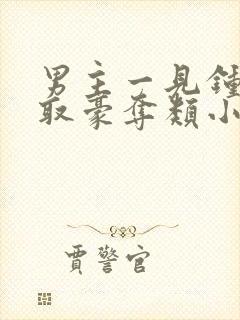 男主一見鍾
取豪奪類小
賈警官